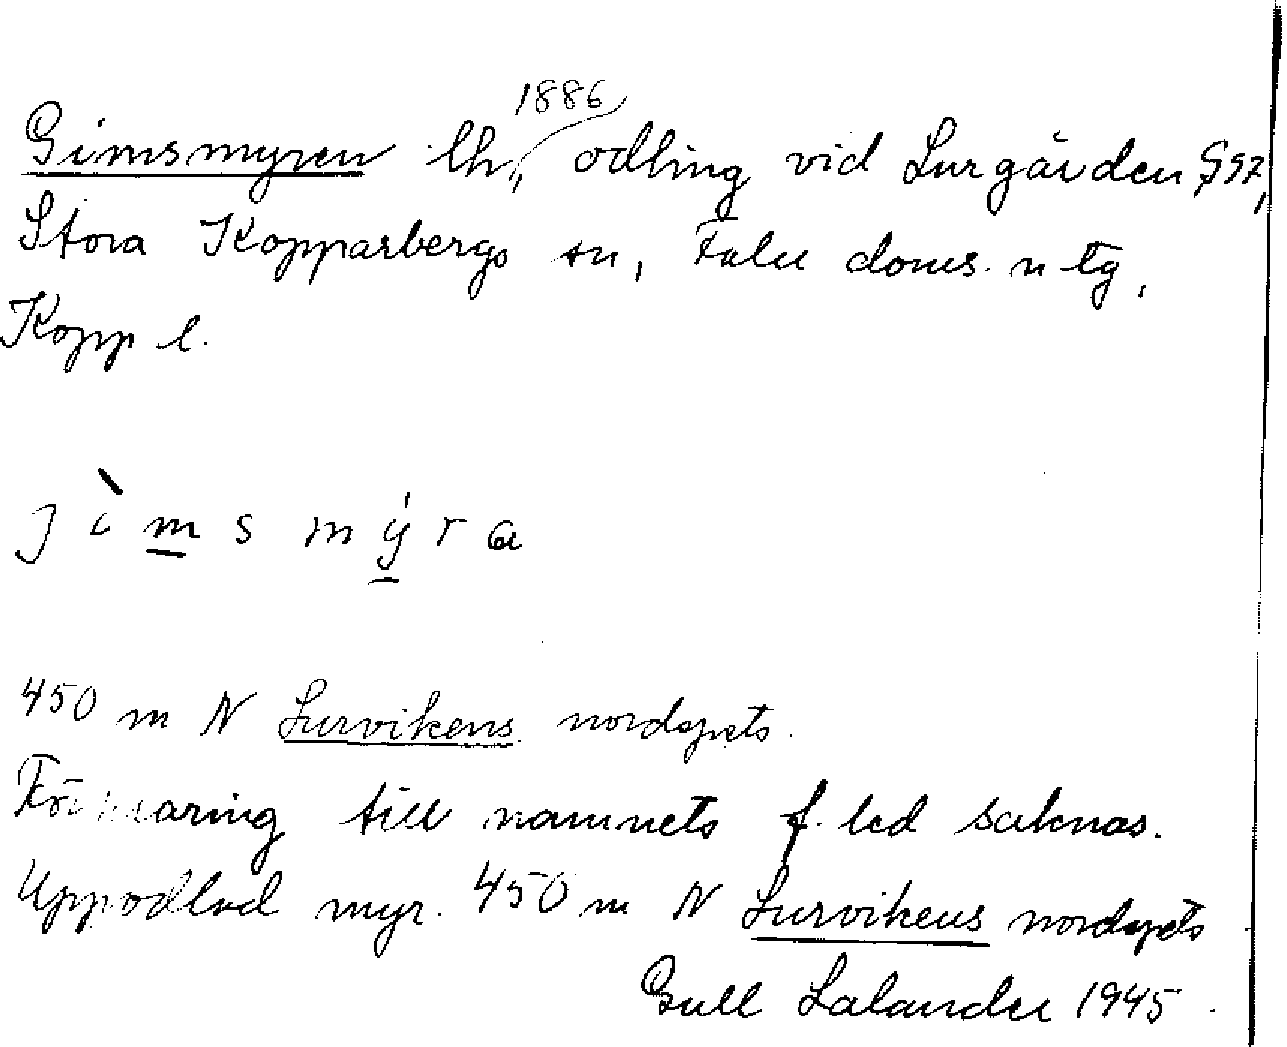 1886
Gimsmyren lh, odling vid Lurgården
Stora Kopparbergs sn, Falu doms. n tg,
Kopp l.
j ì m s m ý r a
450 m N Lurvikens nordspets.
Förklaring till namnets f. led saknas.
Uppodlad myr. 450 m N Lurvikens nordspets
Gull Lalander 1945.